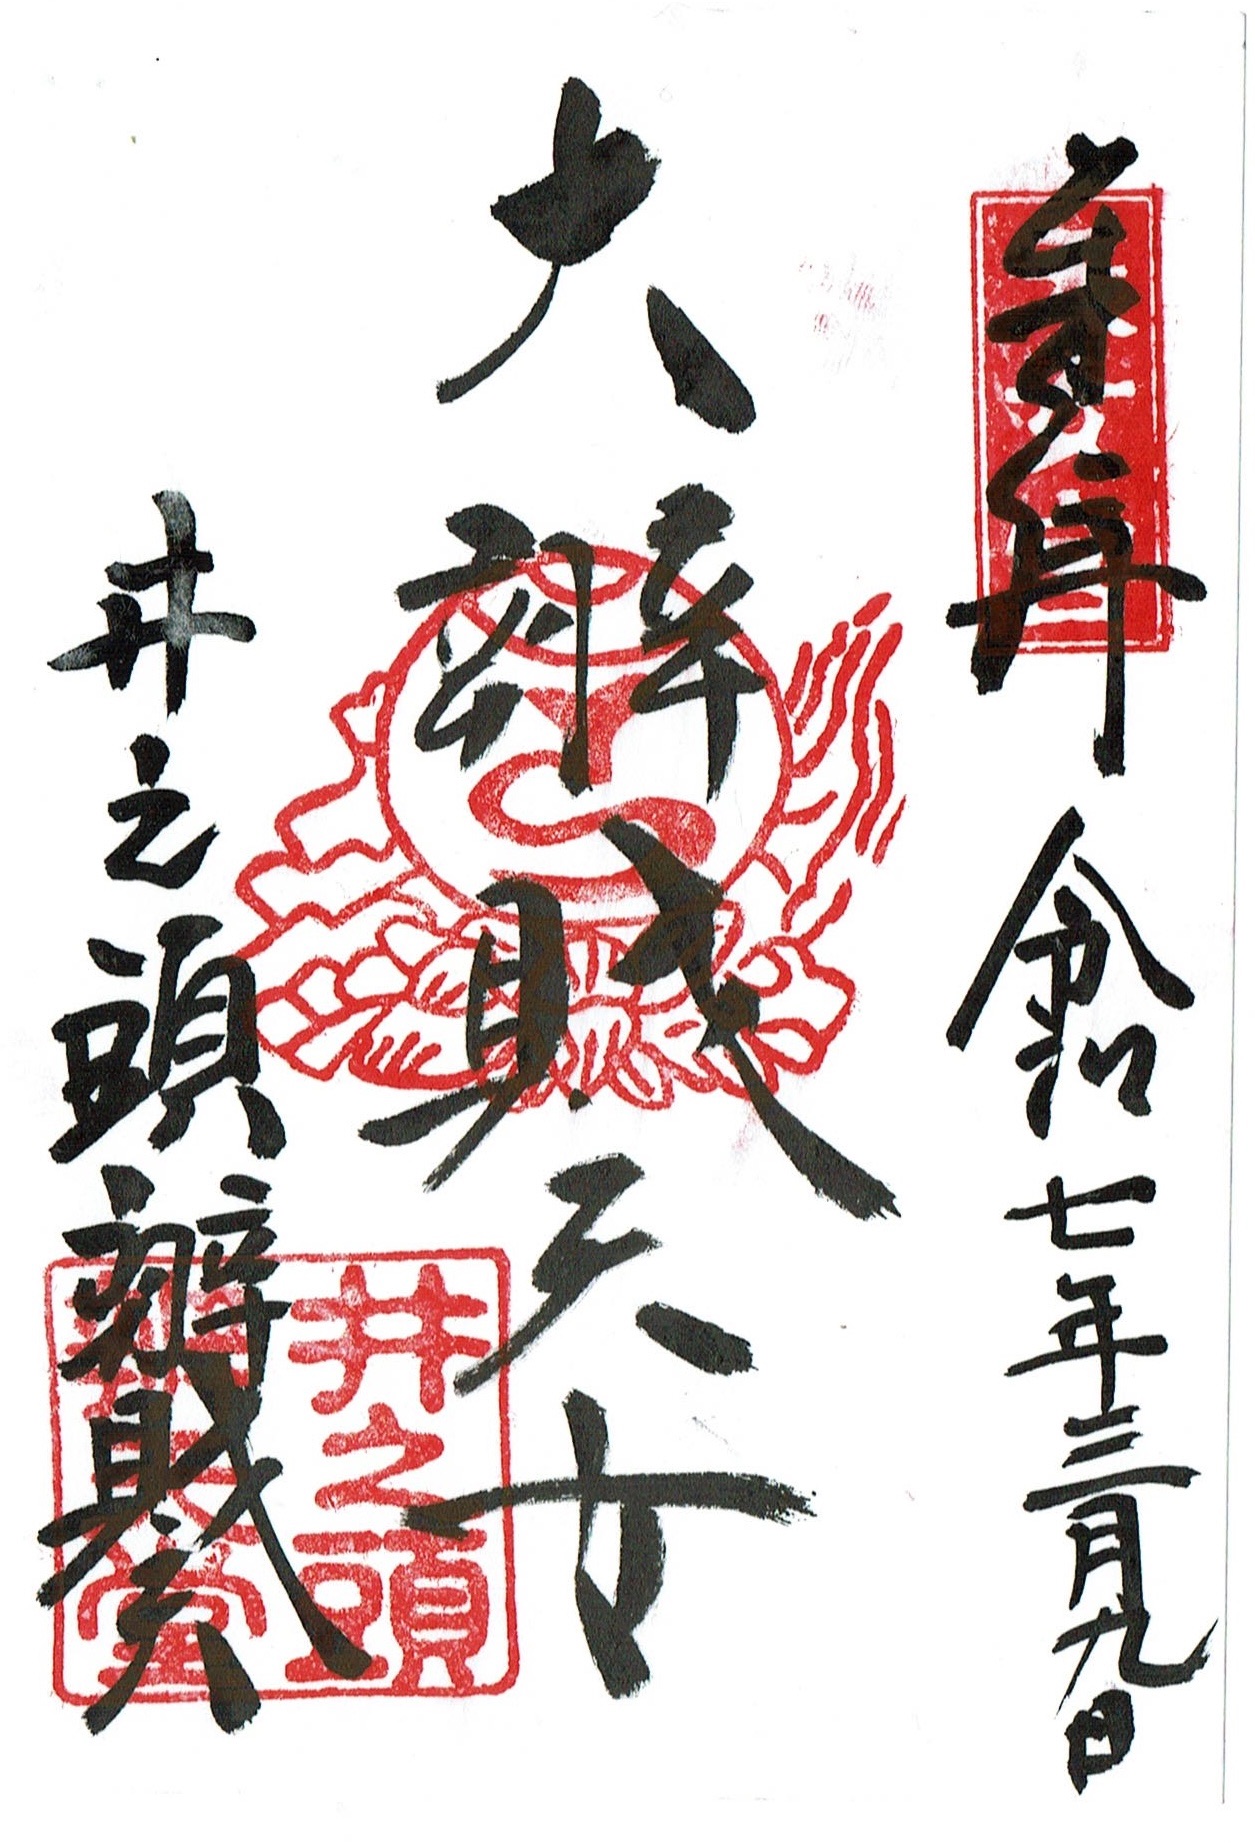 奉拝 令和七年三月九日
大辨財天女
井之頭辨財天
井之頭
辨天堂